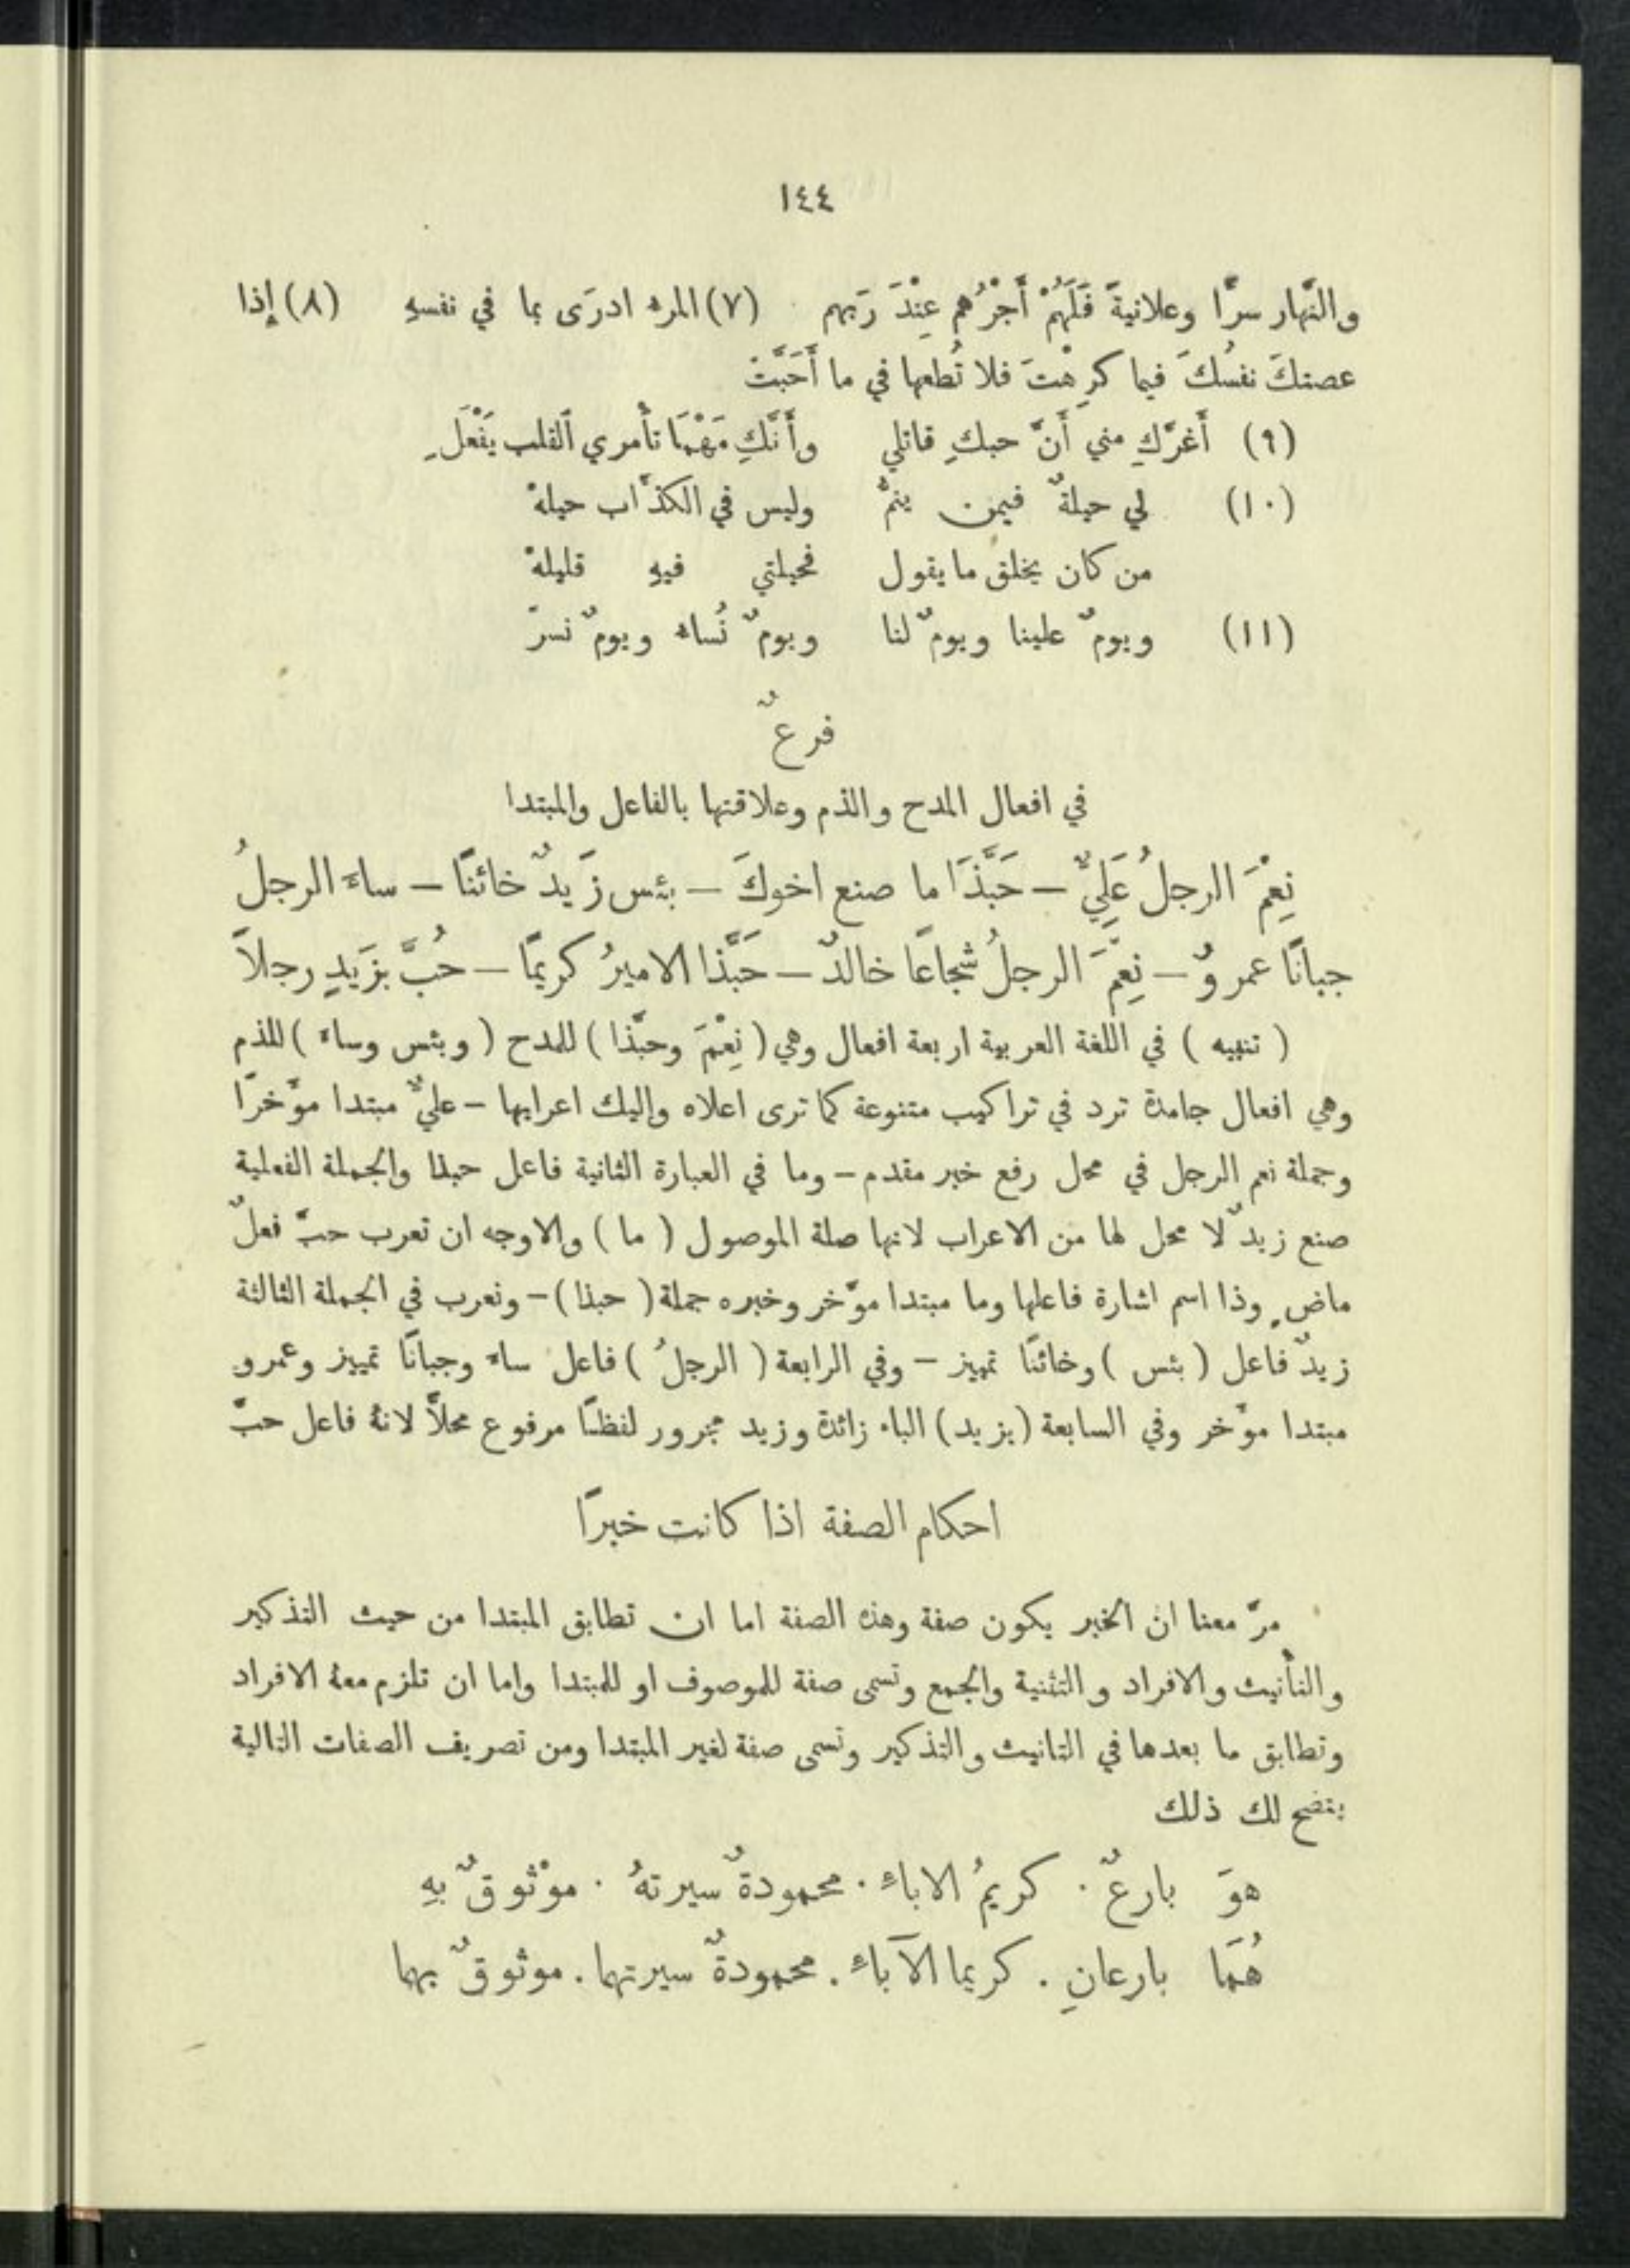 ١٤٤
والنّهار سرًّا وعلانيةً فَلَهُمْ أَجْرُهُم عِنْدَ رَبهم (٧) المرء ادرَى بما في نفسهِ (٨) إِذا
عصتكَ نفسُكَ فيما كرِهْتَ فلا تُطعها في ما أَحَبَّتْ
(٩) أَغرَّكِ مني أَنَّ حبكِ قاتلي وأَنَّكِ مَهْمَا تأْمري ٱلقلب يَفْعَلِ
(١٠) لي حيلةٌ فيمن ينمُّ وليس في الكذَّاب حيلهْ
من كان يخلق ما يقول فحيلتي فيهِ قليلهْ
(١١) ويومٌ علينا ويومٌ لنا ويومٌ نُساء ويومٌ نسرّ
فرعٌ
في افعال المدح والذم وعلاقتها بالفاعل والمبتدا
نِعْمَ الرجلُ عَلِيٌّ — حَبَّذَا ما صنع اخوكَ — بئس زَيدٌ خائنًا — ساءَ الرجلُ
جبانًا عمروٌ — نِعْمَ الرجلُ شجاعًا خالدٌ — حَبَّذا الاميرُ كريمًا — حُبَّ بزَيدٍ رجلاً
( تنبيه ) في اللغة العربية اربعة افعال وهي ( نِعْمَ وحبَّذا ) للمدح ( وبئس وساءَ ) للذم
وهي افعال جامدة ترد في تراكيب متنوعة كما ترى اعلاه واليك اعرابها – عليٌّ مبتدا مؤَخرًا
وجملة نعم الرجل في محل رفع خبر مقدم – وما في العبارة الثانية فاعل حبذا والجملة الفعلية
صنع زيدٌ لا محل لها من الاعراب لانها صلة الموصول ( ما ) والاوجه ان تعرب حبّ فعلٌ
ماضٍ وذا اسم اشارة فاعلها وما مبتدا مؤَخر وخبره جملة ( حبذا ) – وتعرب في الجملة الثالثة
زيدٌ فاعل ( بئس ) وخائنًا تمييز – وفي الرابعة ( الرجلُ ) فاعل ساءَ وجبانًا تمييز وعمرو
مبتدا مؤَخر وفي السابعة (بزيد) الباء زائدة وزيد مجرور لفظًا مرفوع محلاًّ لانهُ فاعل حبّ
احكام الصفة اذا كانت خبرًا
مرّ معنا ان الخبر يكون صفة وهذه الصفة اما ان تطابق المبتدا من حيث التذكير
والتأنيث والافراد والتثنية والجمع وتسمى صفة للموصوف او للمبتدا واما ان تلزم معهُ الافراد
وتطابق ما بعدها في التانيث والتذكير وتسمى صفة لغير المبتدا ومن تصريف الصفات التالية
يتضح لك ذلك
هوَ بارعٌ . كريمُ الاباءِ . محمودةٌ سيرتهُ . موْثوقٌ بهِ
هُمَا بارعانِ . كريما الآباءِ . محمودةٌ سيرتهما . موثوقٌ بهما